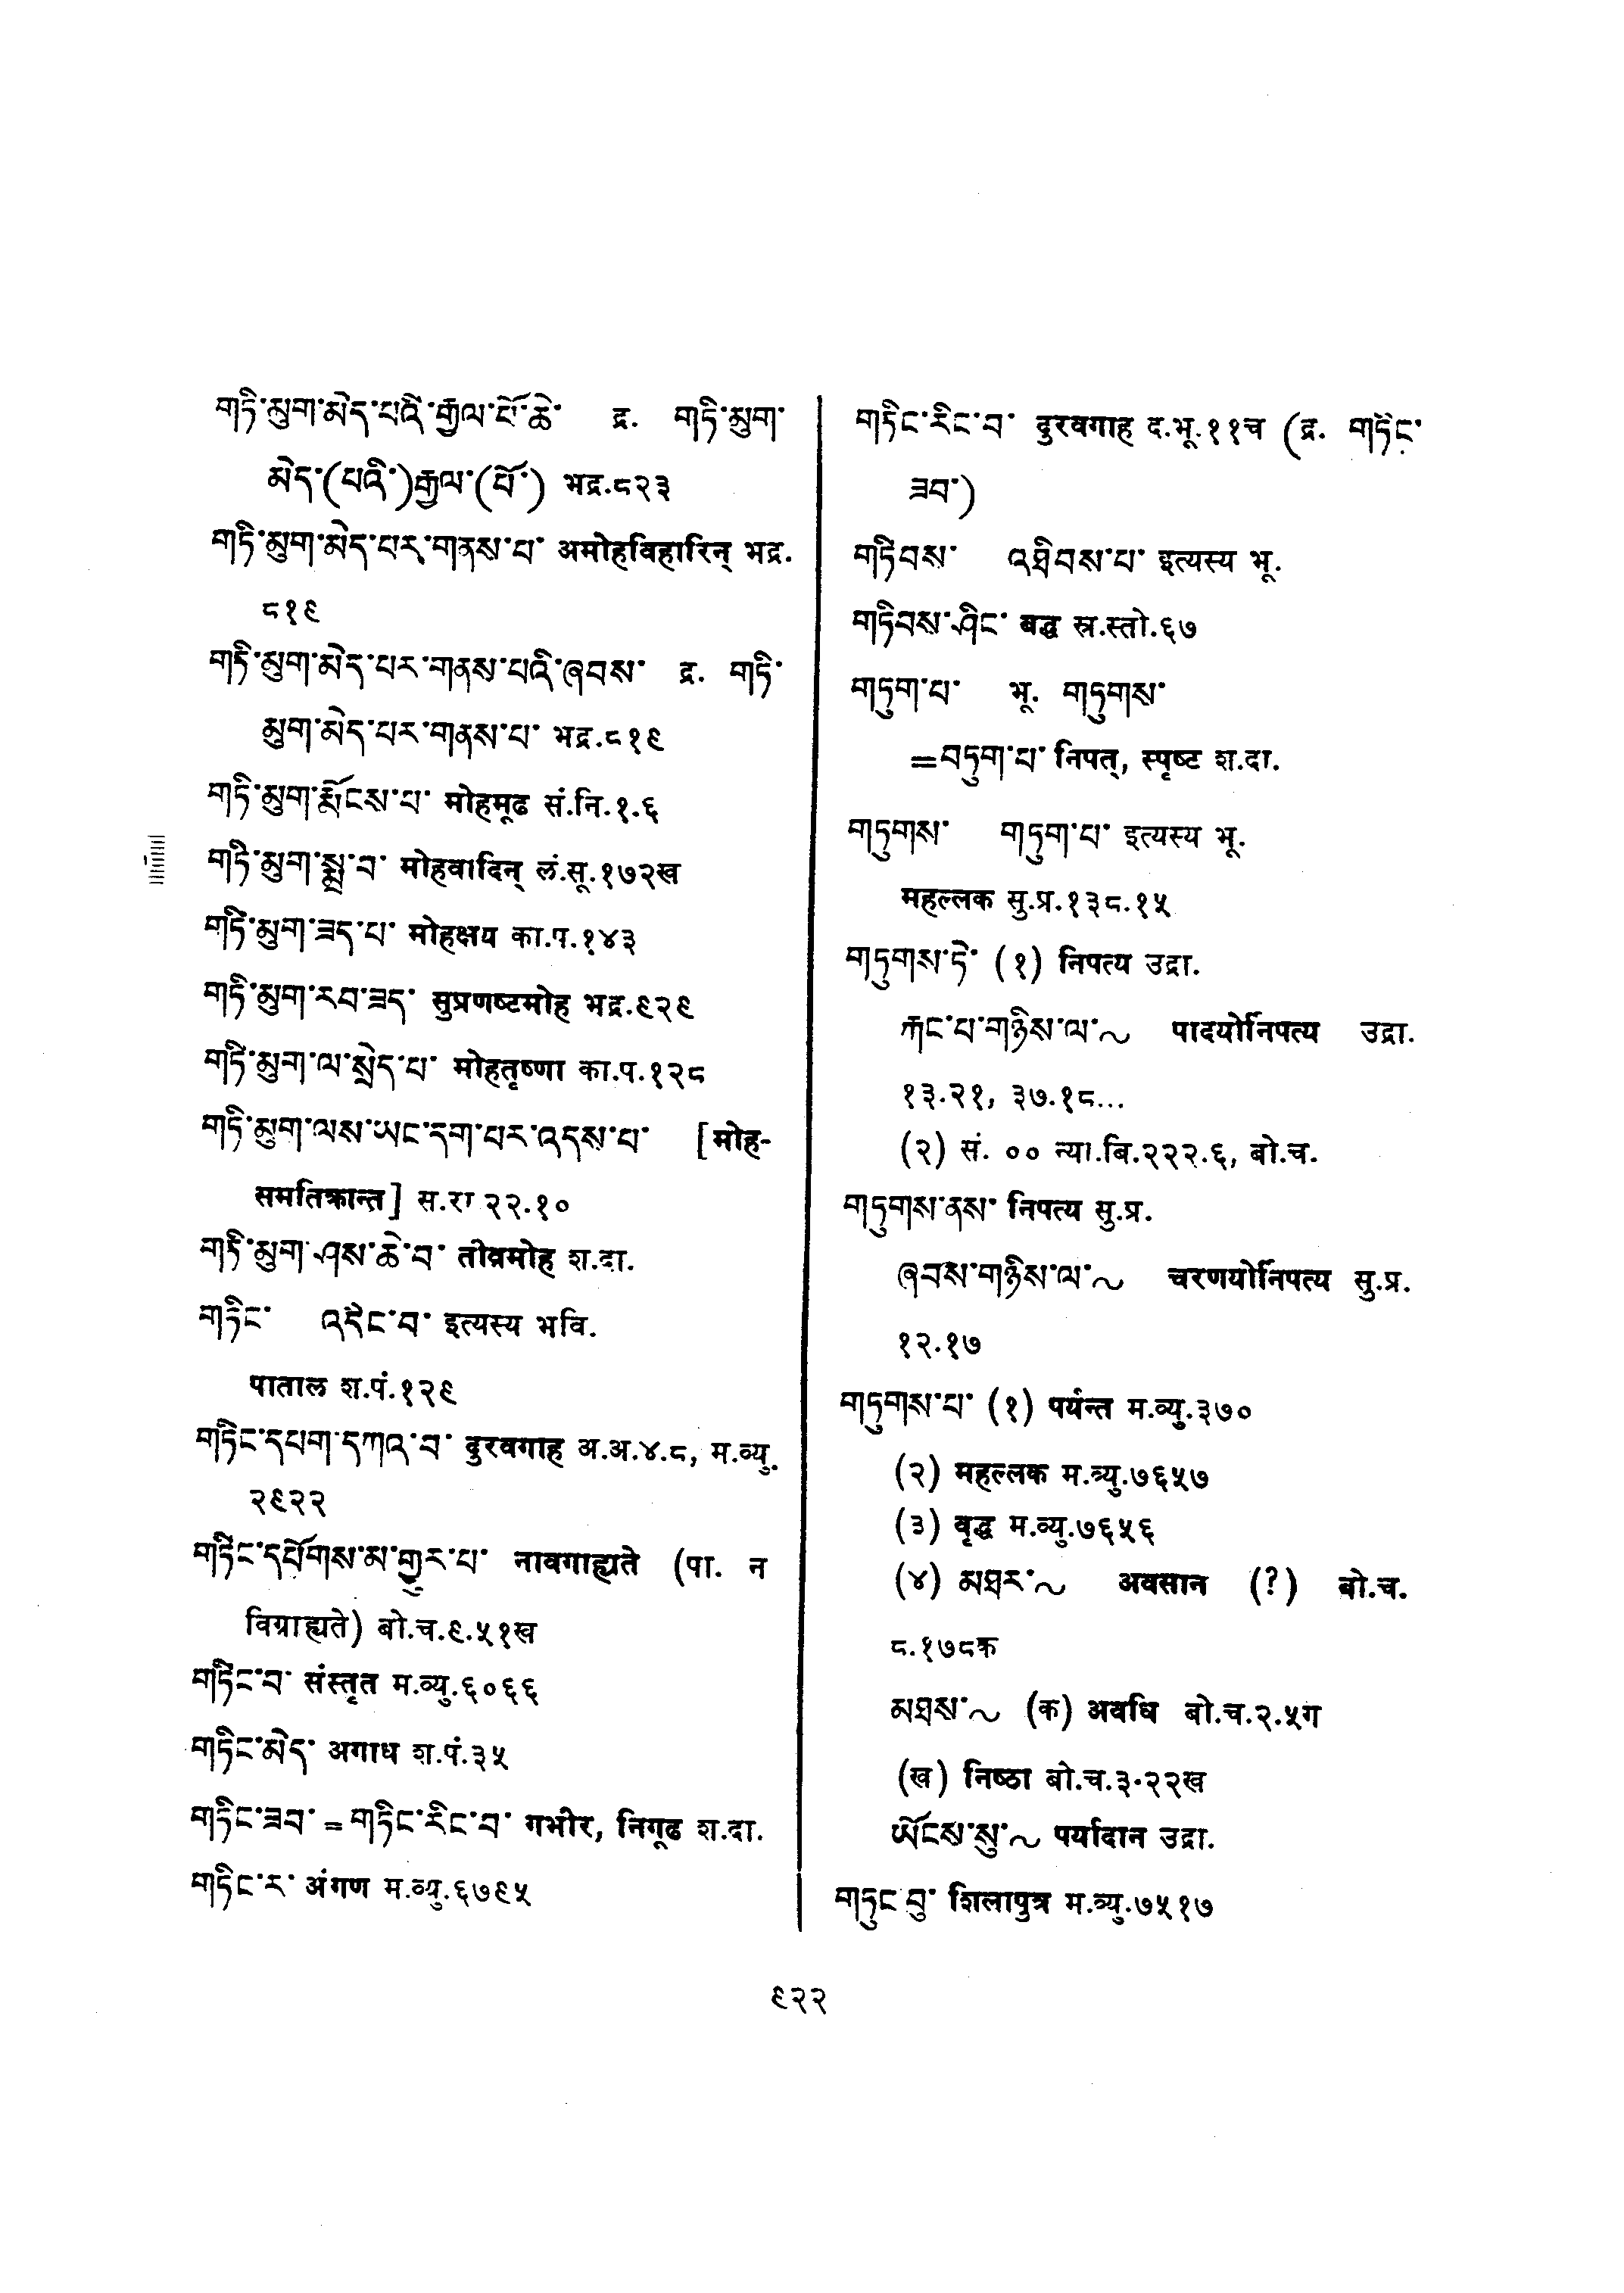 གཏི་མུག་མེད་པའི་རྒྱལ་པོ་ཆེ་ द्र. གཏི་མུག་
མེད་(པའི་)རྒྱལ་(པོ་) भद्र.८२३
གཏི་མུག་མེད་པར་གནས་པ་ अमोहविहारिन् भद्र.
८१९
གཏི་མུག་མེད་པར་གནས་པའི་ཞབས་ द्र. གཏི་
མུག་མེད་པར་གནས་པ་ भद्र.८१९
གཏི་མུག་རྨོངས་པ་ मोहमूढ सं.नि.१.६
གཏི་མུག་སྨྲ་བ་ मोहवादिन् लं.सू.१७२ख
གཏི་མུག་ཟད་པ་ मोहक्षय का.प.१४३
གཏི་མུག་རབ་ཟད་ सुप्रणष्टमोह भद्र.९२९
གཏི་མུག་ལ་སྲེད་པ་ मोहतृष्णा का.प.१२८
གཏི་མུག་ལས་ཡང་དག་པར་འདས་པ་ [मोह-
समतिक्रान्त] स.रा २२.१०
གཏི་མུག་ཤས་ཆེ་བ་ तीव्रमोह श.दा.
གཏིང་ འདིང་བ་ इत्यस्य भवि.
पाताल श.पं.१२९
གཏིང་དཔག་དཀའ་བ་ दुरवगाह अ.अ.४.८, म.व्यु.
२९२२
གཏིང་དཔོགས་མ་གྱུར་པ་ नावगाह्यते (पा. न
विग्राह्यते) बो.च.९.५१ख
གཏིང་བ་ संस्तृत म.व्यु.६०६६
གཏིང་མེད་ अगाध श.पं.३५
གཏིང་ཟབ་ = གཏིང་རིང་བ་ गभीर, निगूढ श.दा.
གཏིང་ར་ अंगण म.व्यु.६७९५
གཏིང་རིང་བ་ दुरवगाह द.भू.११च (द्र. གཏིང་
ཟབ་)
གཏིབས་ འཐིབས་པ་ इत्यस्य भू.
གཏིབས་ཤིང་ बद्ध स्र.स्तो.६७
གཏུག་པ་ भू. གཏུགས་
=བཏུག་པ་ निपत्, स्पृष्ट श.दा.
གཏུགས་ གཏུག་པ་ इत्यस्य भू.
महल्लक सु.प्र.१३८.१५
གཏུགས་ཏེ་ (१) निपत्य उद्रा.
རྐང་པ་གཉིས་ལ་~ पादयोर्निपत्य उद्रा.
१३.२१, ३७.१८...
(२) सं. ०० न्या.बि.२२२.६, बो.च.
གཏུགས་ནས་ निपत्य सु.प्र.
ཞབས་གཉིས་ལ་~ चरणयोर्निपत्य सु.प्र.
१२.१७
གཏུགས་པ་ (१) पर्यन्त म.व्यु.३७०
(२) महल्लक म.व्यु.७६५७
(३) वृद्ध म.व्यु.७६५६
(४) མཐར་~ अवसान (?) बो.च.
८.१७८क
མཐས་~ (क) अवधि बो.च.२.५ग
(ख) निष्ठा बो.च.३.२२ख
ཡོངས་སུ་~ पर्यादान उद्रा.
གཏུང་བུ་ शिलापुत्र म.व्यु.७५१७
९२२